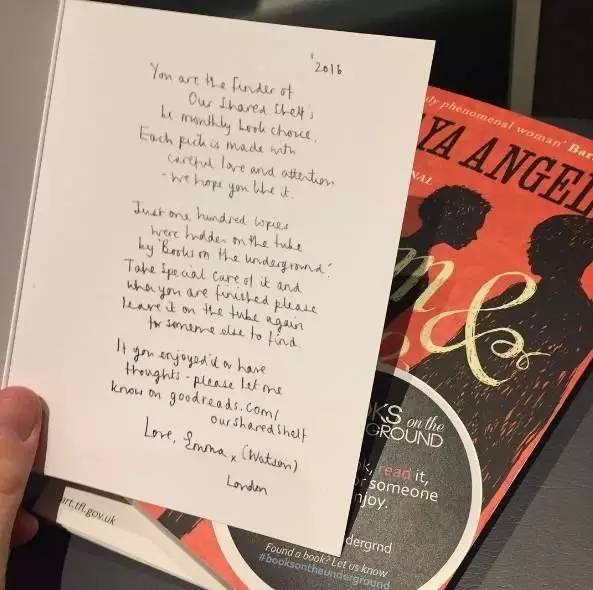 2016
You are the finder of
Our Shared Shelf's
bi monthly book choice.
Each pick is made with
careful love and attention
- we hope you like it.
Just one hundred copies
were hidden on the tube
by 'Books on the underground'.
Take special care of it and
when you are finished please
leave it on the tube again
for someone else to find.
If you enjoyed it or have
thoughts - please let me
know on goodreads.com/
oursharedshelf
Love, Emma x (Watson)
London
phenomenal woman' Bar
YA ANGEL
NAL
m &
KS on the
GROUND
k, read it,
or someone
njoy.
dergrnd
Found a book? Let us know
#booksontheunderground
art.tfl.gov.uk